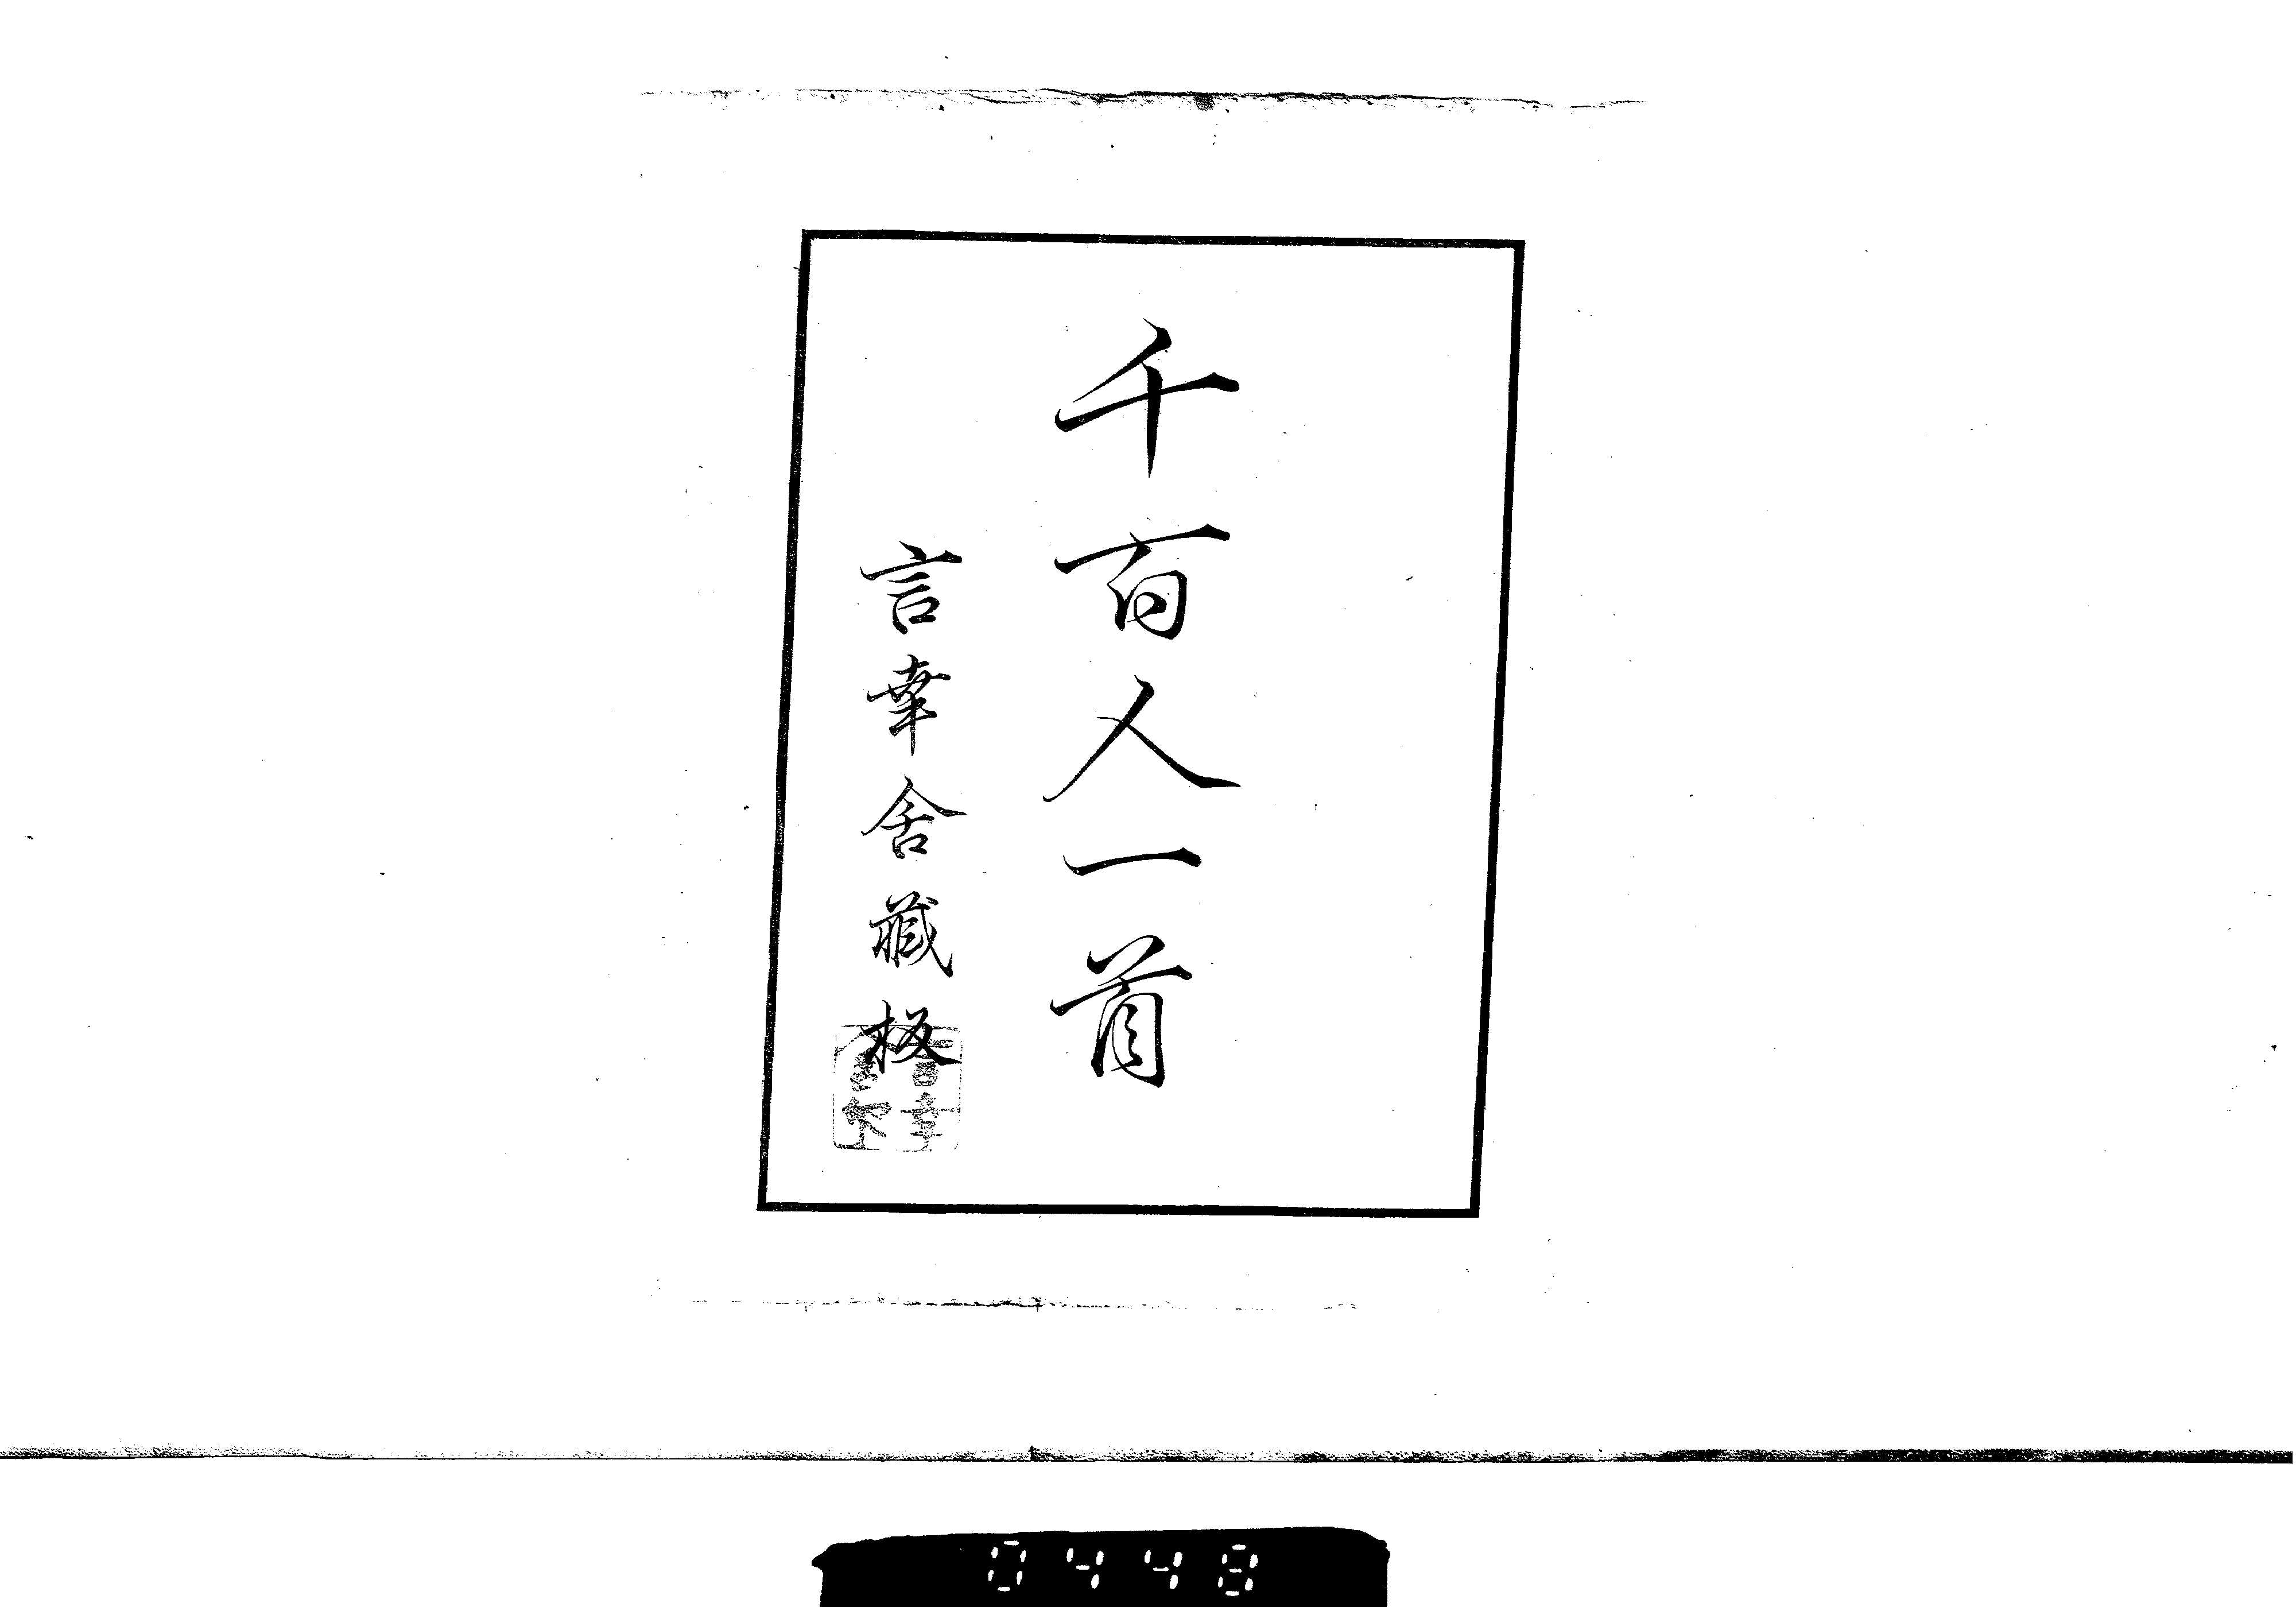 千百人一首
言幸舍藏板
言幸
0448